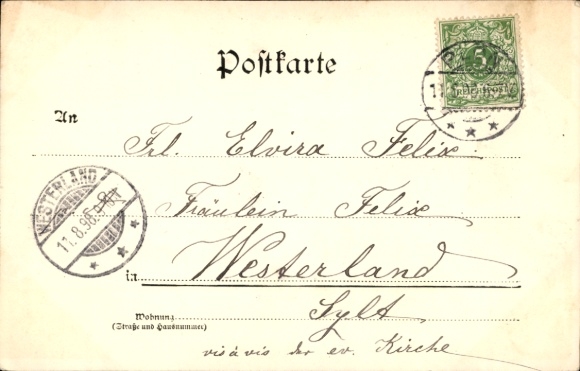 Postkarte
5
REICHSPOST
An
Frl. Elvira Felix
Fräulein Felix
WESTERLAND
11.8.98.
in Westerland
Sylt
Wohnung
(Straße und Hausnummer)
vis à vis der ev. Kirche